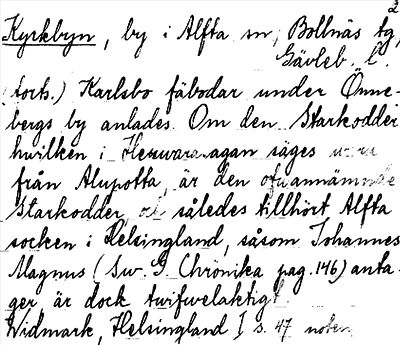 2
Kyrkbyn, by i Alfta sn, Bollnäs tg,
Gävleb. l.
(forts.) Karlsbo fäbodar under Önne-
bergs by anlades. Om den Starkodder
hwilken i Herwararsagan säges wara
från Alupotta, är den ofwannämnde
Starkodder, och således tillhört Alfta
socken i Helsingland, såsom Johannes
Magnus (Sw. G. Chrönika pag. 146) anta-
ger är dock twifwelaktigt.
Widmark, Helsingland I s. 47 noten